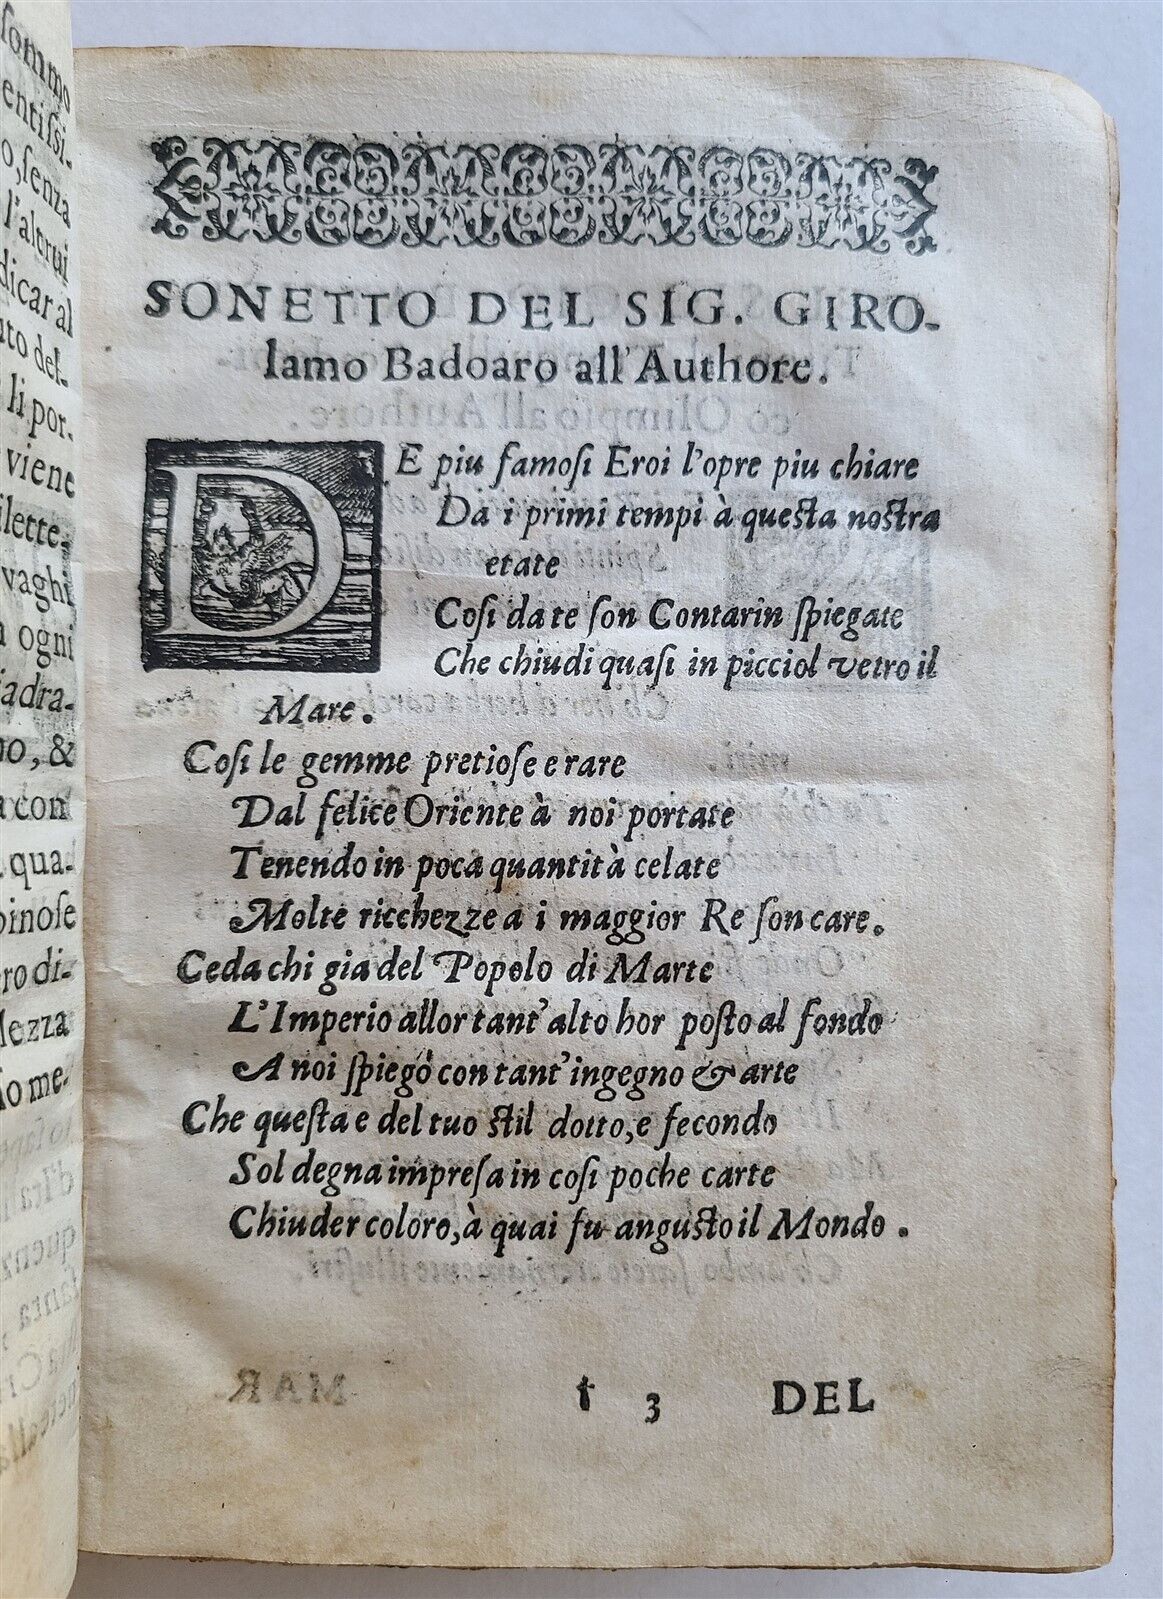 ſommo
entiſsi-
o, ſenza
l'altrui
dicar al
uto del-
li por-
viene
ilette-
vaghi
ogni
iadra-
no, &
a con
qua-
pinoſe
ro di-
lezza
ſo me-
SONETTO DEL SIG. GIRO-
lamo Badoaro all'Authore.
DE piu famoſi Eroi l'opre piu chiare
Da i primi tempi à queſta noſtra
etate
Coſi da te ſon Contarin ſpiegate
Che chiudi quaſi in picciol vetro il
Mare.
Coſi le gemme pretioſe e rare
Dal felice Oriente à noi portate
Tenendo in poca quantità celate
Molte ricchezze a i maggior Re ſon care.
Ceda chi gia del Popolo di Marte
L'Imperio allor tant'alto hor poſto al fondo
A noi ſpiegò con tant'ingegno & arte
Che queſta e del tuo ſtil dotto, e fecondo
Sol degna impreſa in coſi poche carte
Chiuder coloro, à quai fu anguſto il Mondo.
† 3 DEL